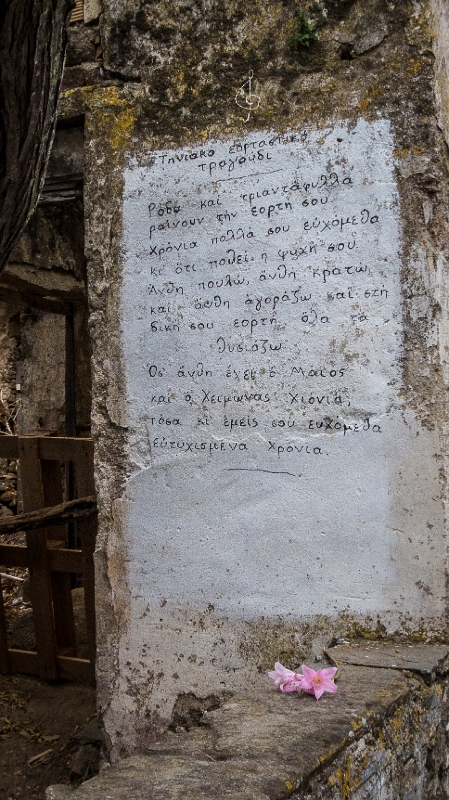 Τηνιακο εορταστικο
τραγούδι
Ρόδα και τριαντάφυλλα
ραίνουν τὴν ἑορτή σου
Χρόνια πολλά σου εὐχόμεθα
κι ὅτι ποθεῖ ἡ ψυχή σου
Ἄνθη πουλῶ, ἄνθη κρατῶ,
και ἄνθη ἀγοράζω και στή
δική σου εορτή ὅλα τα
θυσιάζω
Ὅσ' ἄνθη ἔχει ὁ Μαϊος
και ὁ Χειμωνας Χιόνια,
τόσα κι ἐμείς σοῦ εὐχόμεθα
εὐτυχισμενα Χρόνια.